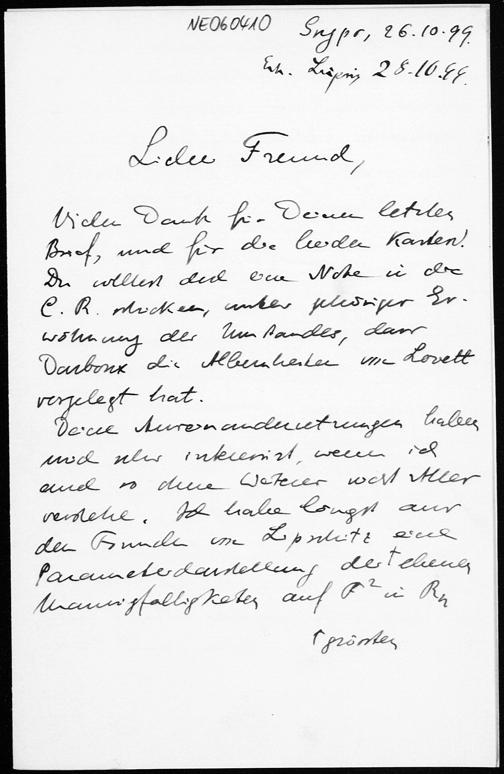 NE060410
26.10.99.
28.10.99.
Lieber Freund,
Vielen Dank für Deinen letzten
Brief, und für die beiden Karten!
Du solltest doch eine Note in die
C. R. schicken, unter gehöriger Er-
wähnung des Umstandes, dass
Darboux die Albernheiten von Lovett
vorgelegt hat.
Deine Auseinandersetzungen haben
mich sehr interessirt, wenn ich
auch so ohne Weiteres nicht Alles
verstehe. Ich habe längst aus
dem Grunde von Lipschitz eine
Parameterdarstellung der ↑ ebenen
Mannigfaltigkeiten auf F² in Rn
↑ grössten